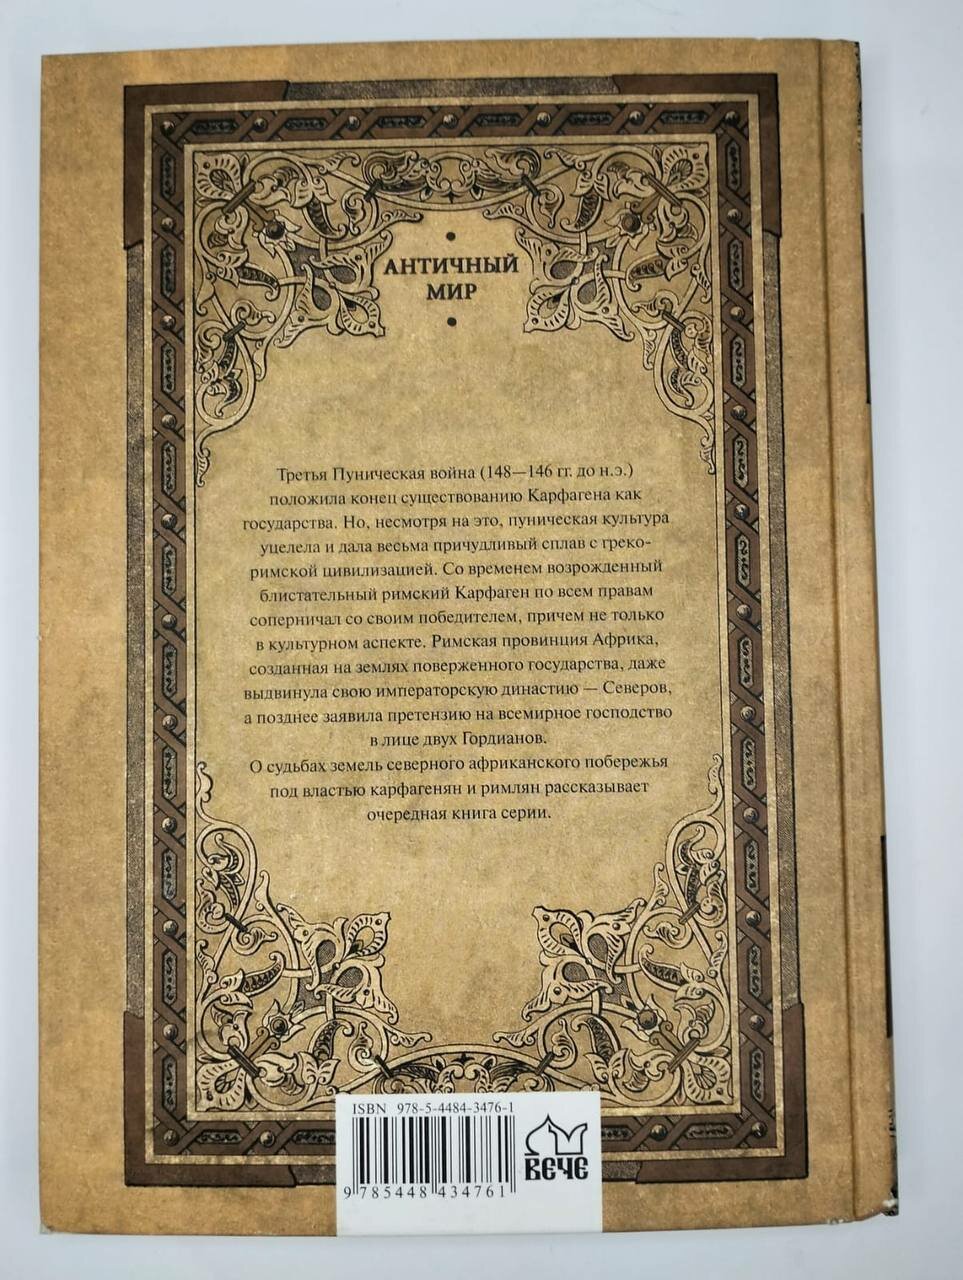 АНТИЧНЫЙ
МИР
Третья Пуническая война (148—146 гг. до н.э.)
положила конец существованию Карфагена как
государства. Но, несмотря на это, пуническая культура
уцелела и дала весьма причудливый сплав с греко-
римской цивилизацией. Со временем возрожденный
блистательный римский Карфаген по всем правам
соперничал со своим победителем, причем не только
в культурном аспекте. Римская провинция Африка,
созданная на землях поверженного государства, даже
выдвинула свою императорскую династию — Северов,
а позднее заявила претензию на всемирное господство
в лице двух Гордианов.
О судьбах земель северного африканского побережья
под властью карфагенян и римлян рассказывает
очередная книга серии.
ISBN 978-5-4484-3476-1
9 785448 434761
ВЕЧЕ